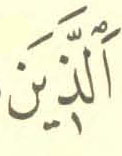 اَلَّذِيْنَ